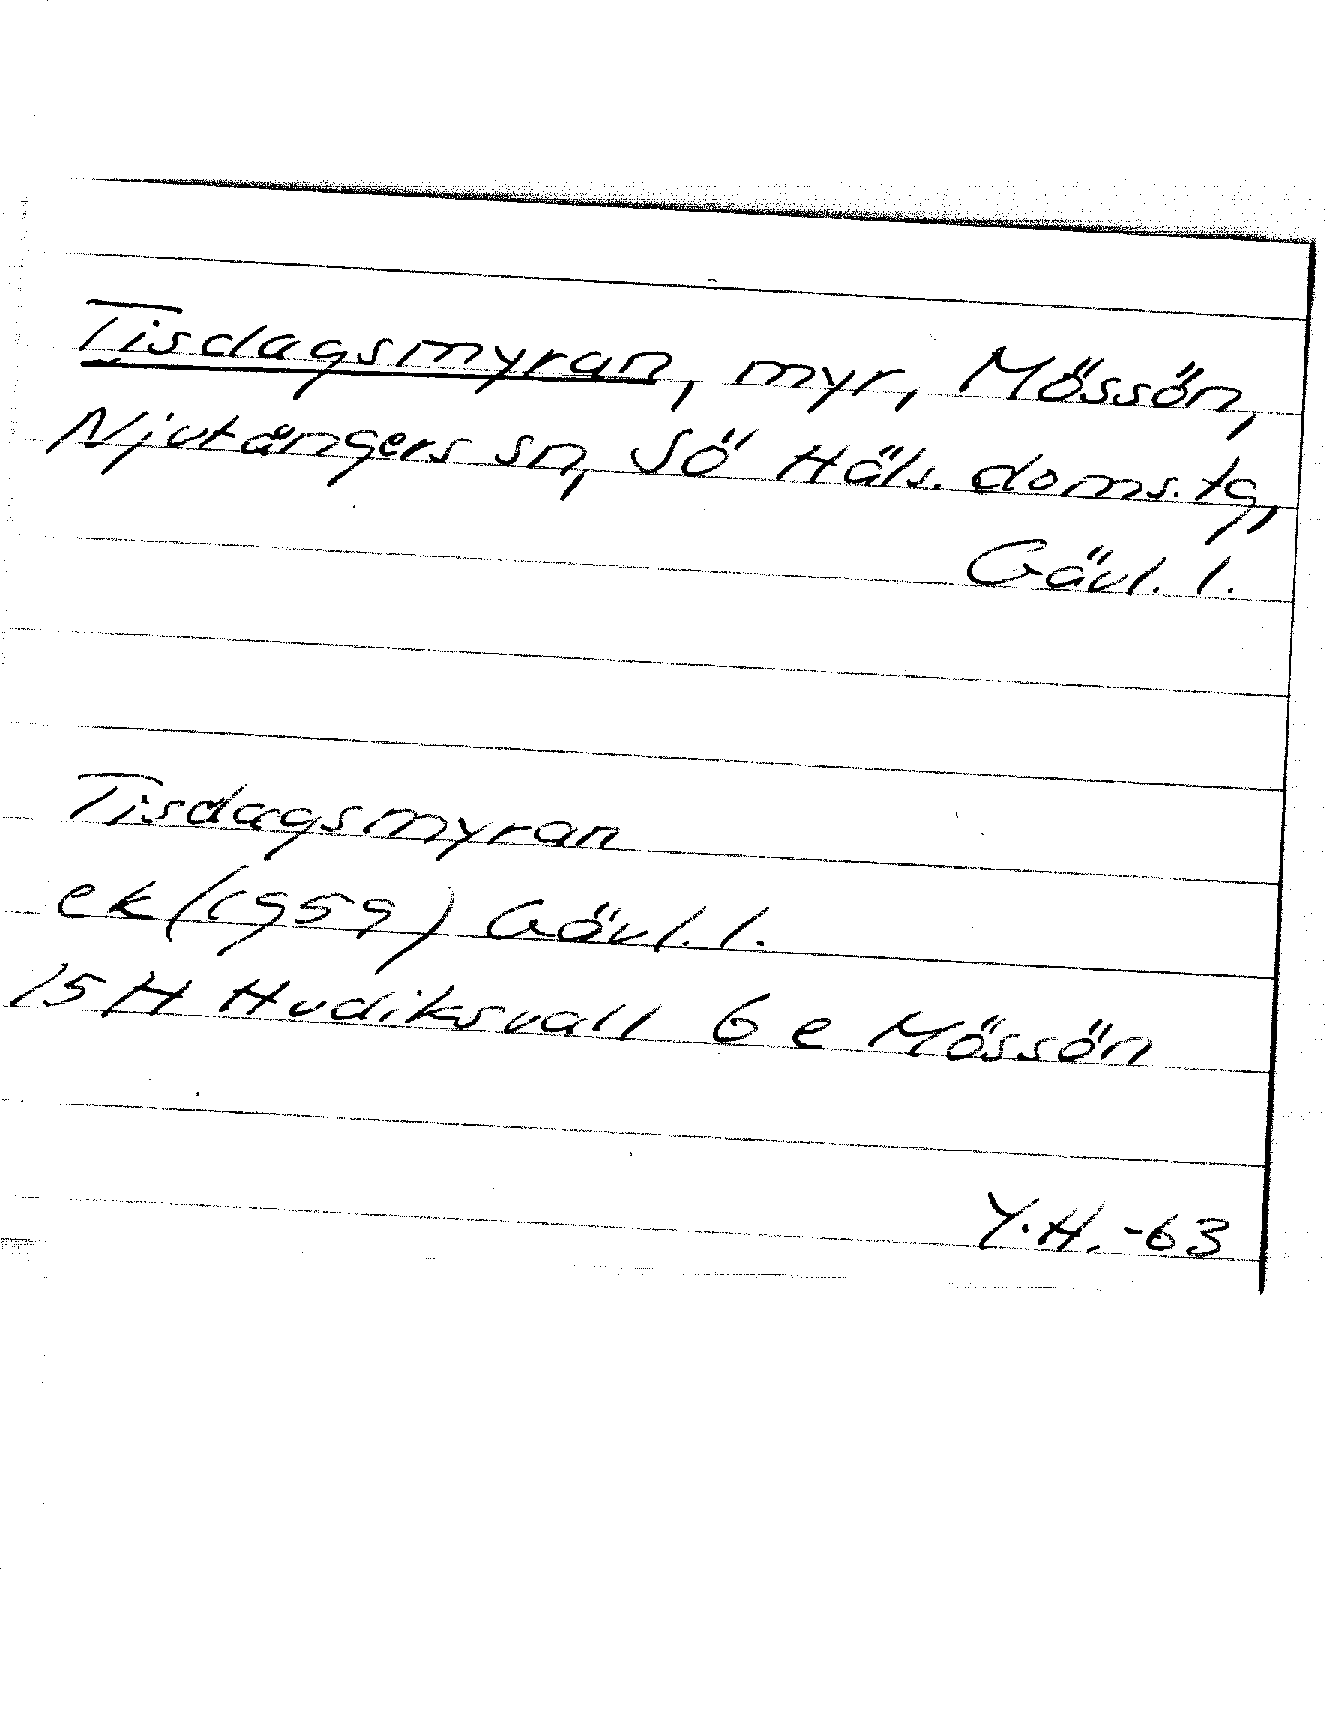 Tisdagsmyran, myr, Mössön,
Njutångers sn, Sö Häls. doms. tg,
Gävl. l.
Tisdagsmyran
ek (1959) Gävl. l.
15 H Hudiksvall 6 e Mössön
Y.H. -63